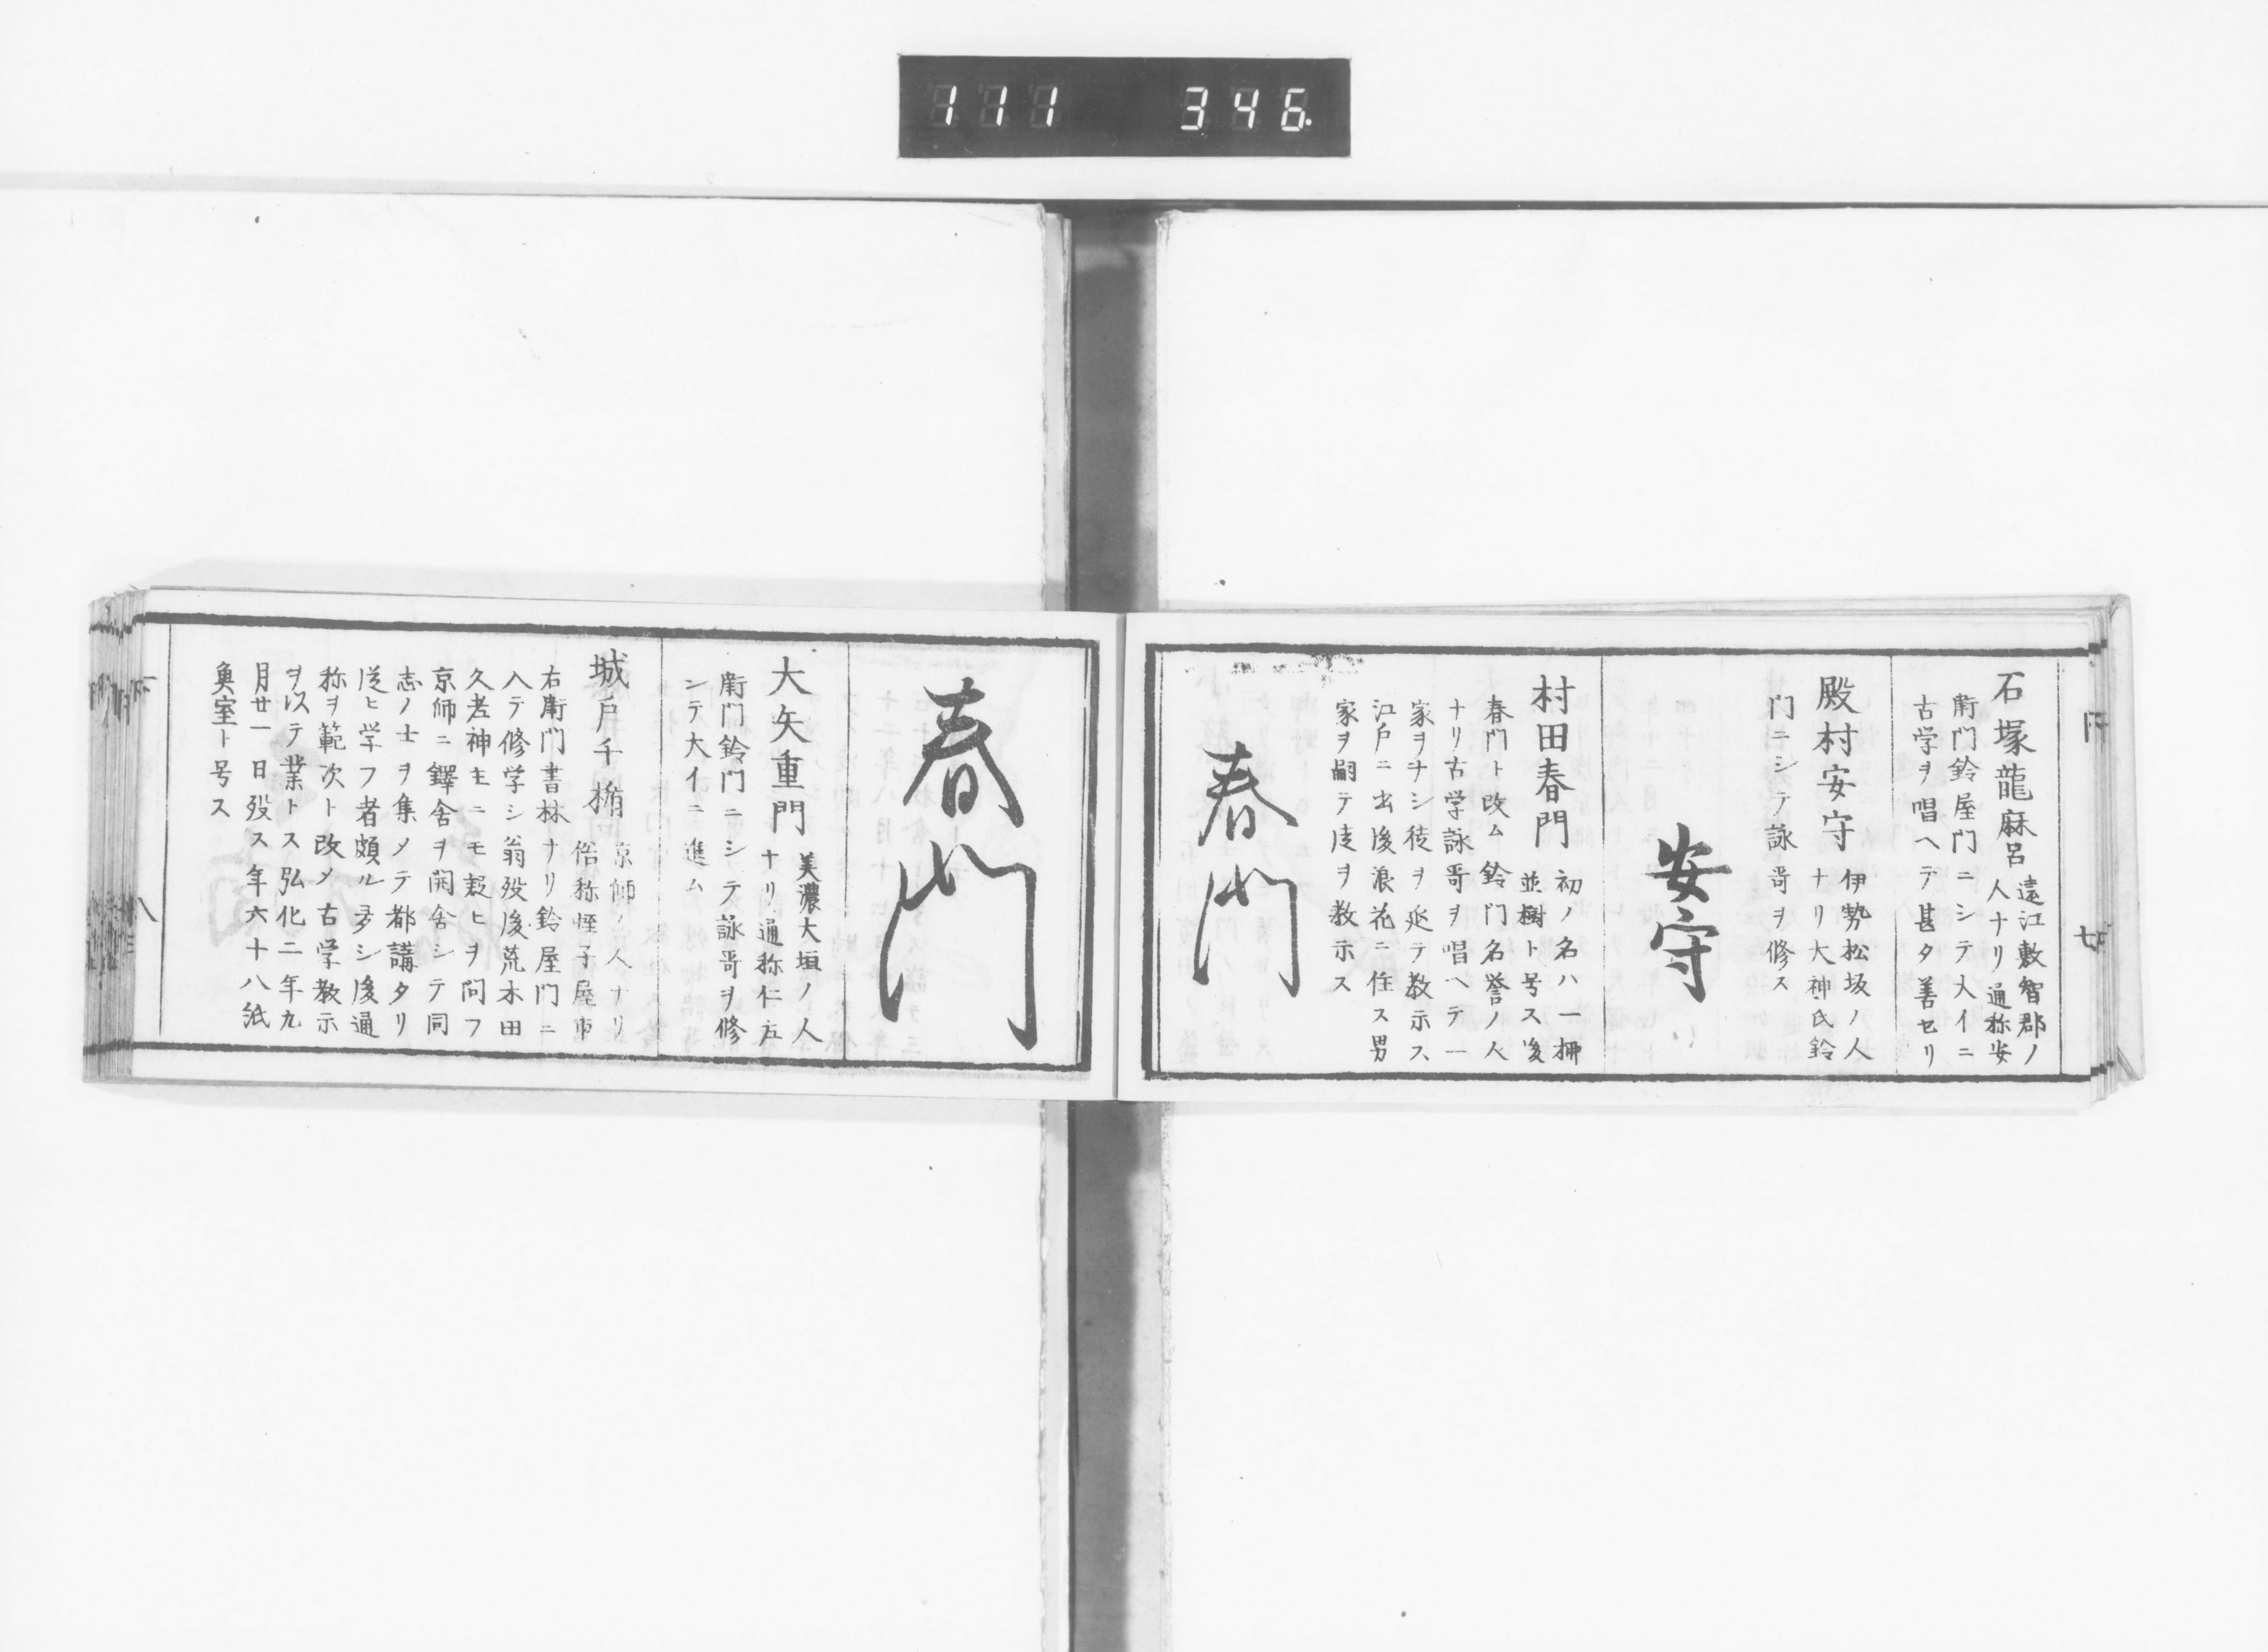 111 346.
石塚龍麻呂 遠江敷智郡ノ
人ナリ通称安
衛門鈴屋門ニシテ大イニ
古学ヲ唱ヘテ甚タ善セリ
殿村安守 伊勢松坂ノ人
ナリ大神氏鈴
門ニシテ詠哥ヲ修ス
安守
村田春門 初ノ名ハ一柳
並樹ト号ス後
春門ト改ム鈴門名誉ノ人
ナリ古学詠哥ヲ唱ヘテ一
家ヲナシ徒ヲ延テ教示ス
江戸ニ出後浪花ニ住ス男
家ヲ嗣テ徒ヲ教示ス
春門
下 七
春門
大矢重門 美濃大垣ノ人
ナリ通称仁左
衛門鈴門ニシテ詠哥ヲ修
シテ大イニ進ム
城戸千楯 京師ノ人ナリ
俗称恵子屋市
右衛門書林ナリ鈴屋門ニ
入テ修学シ翁歿後荒木田
久老神主ニモ疑ヒヲ問フ
京師ニ鐸舎ヲ開舎シテ同
志ノ士ヲ集メテ都講タリ
従ヒ学フ者頗ル多シ後通
称ヲ範次ト改メ古学教示
ヲ以テ業トス弘化二年九
月廿一日歿ス年六十八紙
魚室ト号ス
下 八